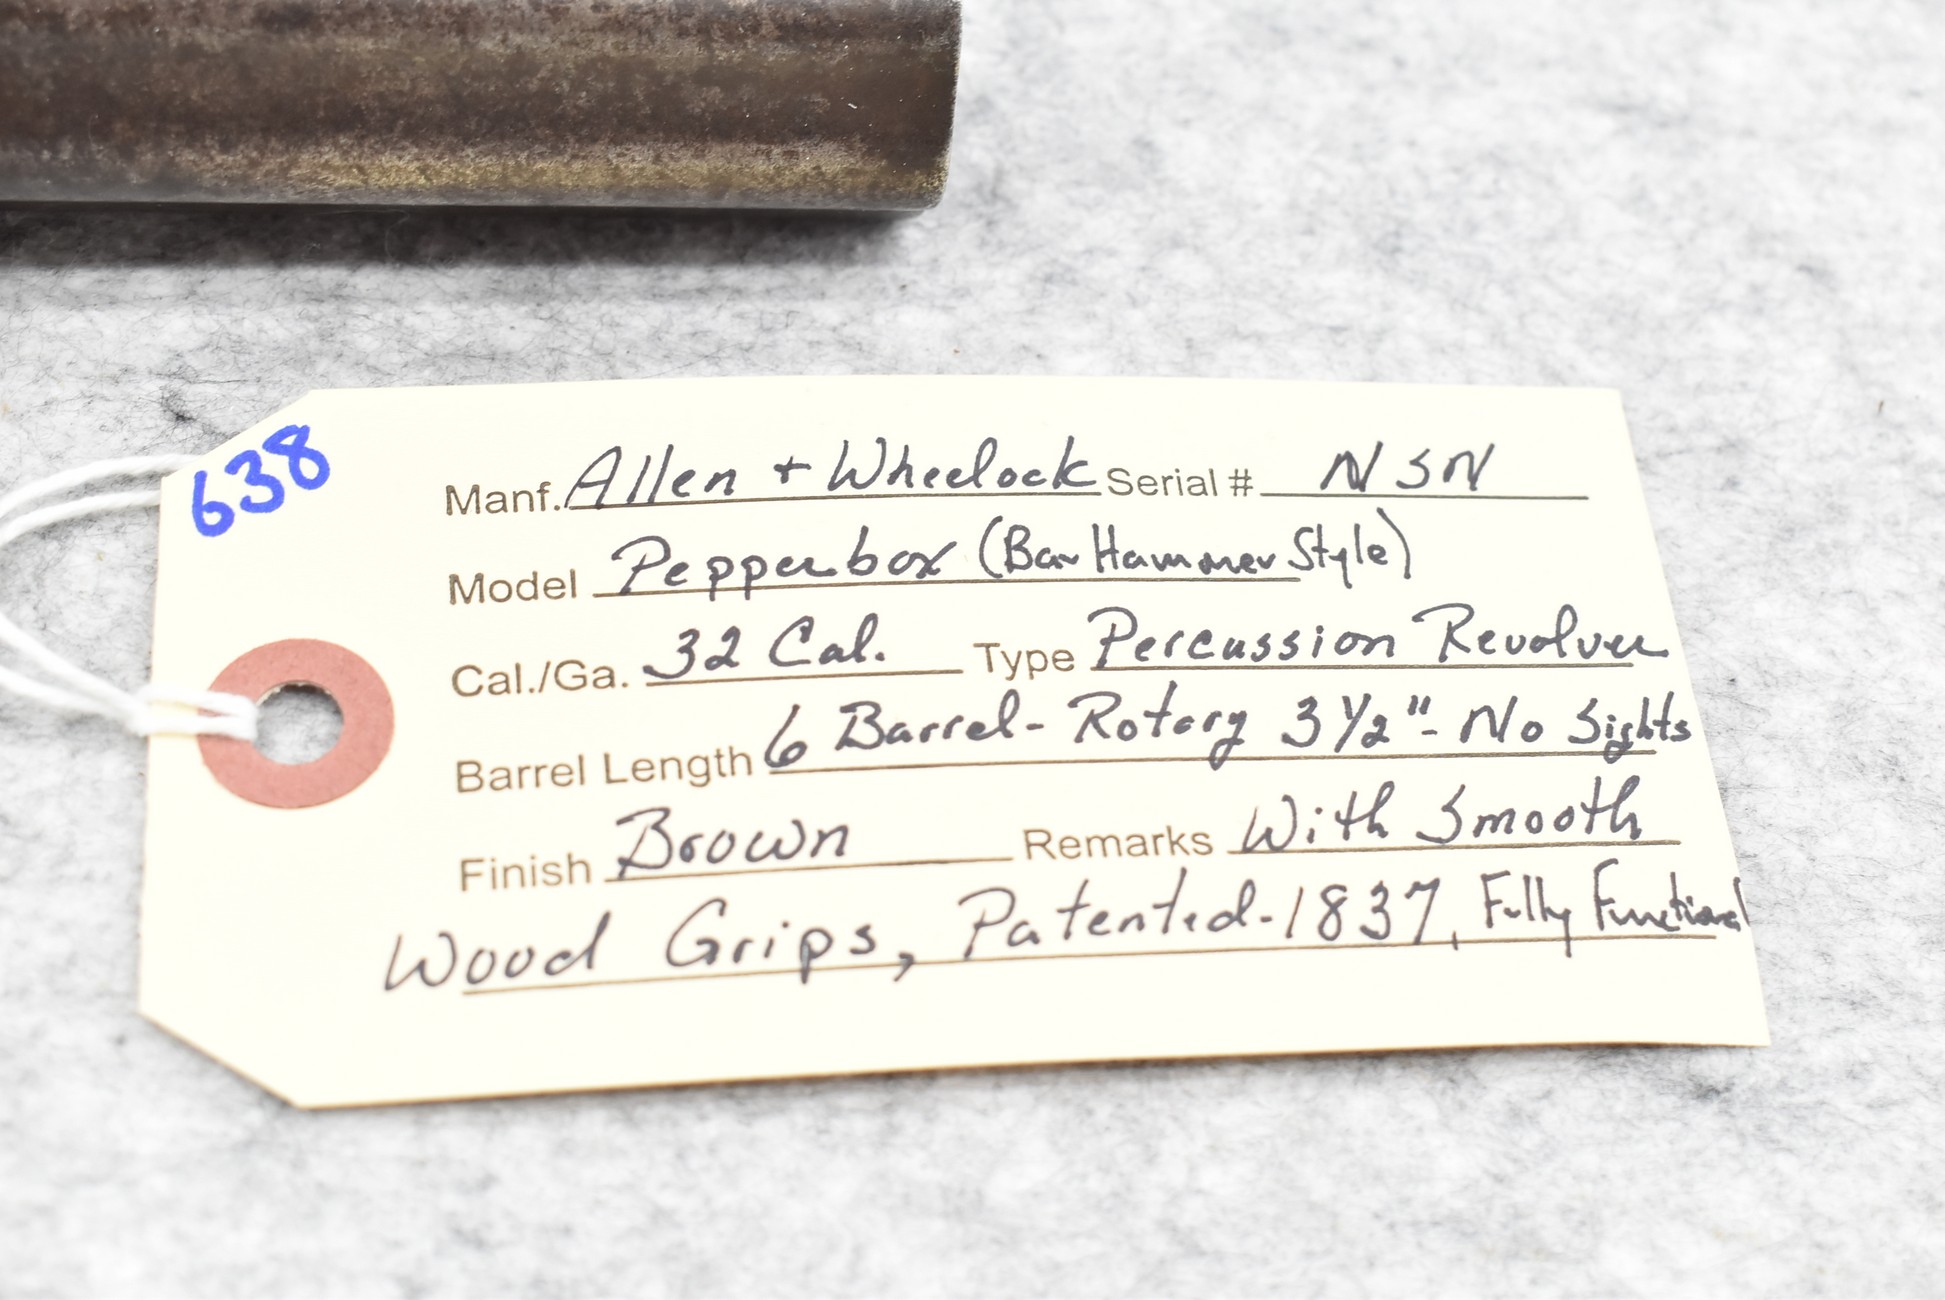 638
Manf. Allen + Wheelock Serial # NSN
Model Pepperbox (Bar Hammer Style)
Cal./Ga. 32 Cal. Type Percussion Revolver
Barrel Length 6 Barrel- Rotary 3 1/2"- No Sights
Finish Brown Remarks With Smooth
Wood Grips, Patented-1837, Fully Functional